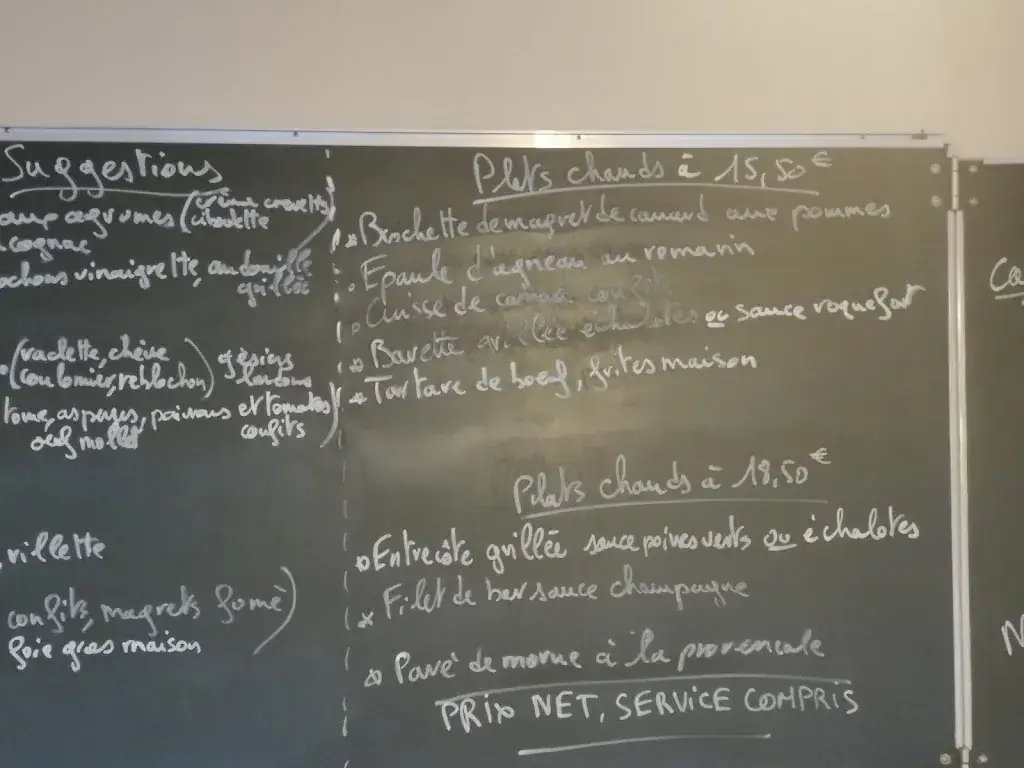 Suggestions
aux agrumes (crème crevette
ciboulette)
cognac
vinaigrette, andouille
grillée
(raclette, chèvre
coulomier, reblochon) gésiers
lardons
tome, asperges, poivrons et tomates
oeuf mollet confits)
rillette
confits, magrets fumé)
foie gras maison
Plats chauds à 15,50€
Brochette de magret de canard aux pommes
Epaule d'agneau au romarin
Cuisse de canard confite
Bavette grillée échalotes ou sauce roquefort
Tartare de boeuf, frites maison
Plats chauds à 18,50€
Entrecôte grillée sauce poivres verts ou échalotes
Filet de bar sauce champagne
Pavé de morue à la provencale
PRIX NET, SERVICE COMPRIS